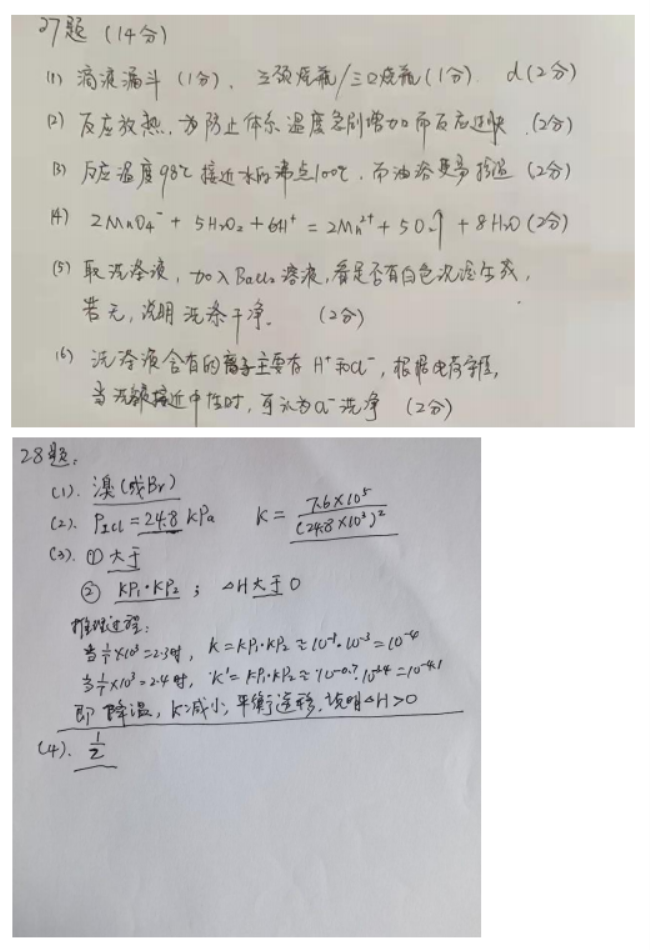 27题 (14分)
(1) 滴液漏斗 (1分)、三颈烧瓶/三口烧瓶(1分) d(2分)
(2) 反应放热,为防止体系温度急剧增加而反应过快 (2分)
(3) 反应温度98℃接近水的沸点100℃,而油浴更易控温 (2分)
(4) 2MnO₄⁻ + 5H₂O₂ + 6H⁺ = 2Mn²⁺ + 5O₂↑ + 8H₂O (2分)
(5) 取洗涤液,加入BaCl₂溶液,看是否有白色沉淀生成,
若无,说明洗涤干净。 (2分)
(6) 洗涤液含有的离子主要有 H⁺和Cl⁻,根据电荷守恒,
当洗涤液接近中性时,可认为Cl⁻洗净 (2分)
28题:
(1). 溴(或Br)
(2). P_ICl = 24.8 kPa K = 7.6×10⁵/(24.8×10³)²
(3). ① 大于
② KP₁·KP₂ ; △H大于0
推理过程:
当1/T×10³=2.3时, K=KP₁·KP₂≈10⁻¹·10⁻³=10⁻⁴
当1/T×10³=2.4时, K'=KP₁·KP₂≈10⁻⁰·⁷·10⁻³·⁴=10⁻⁴·¹
即降温,K减小,平衡逆移,说明△H>0
(4). 1/2